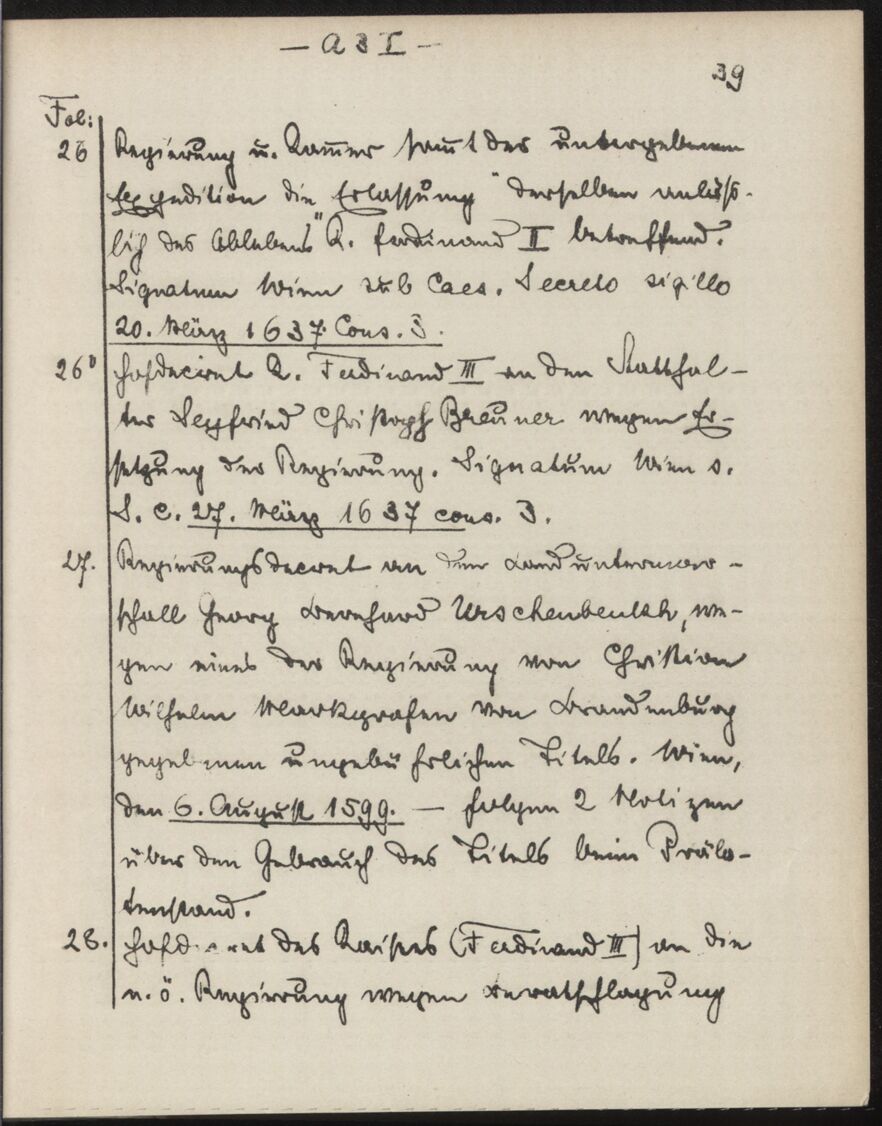 — A 3 I —
39
Fol:
26 Regierung u. Kammer sammt der untergebenen
Expedition die Ersassung "derselben anläss-
lich des Ablebens" K. Ferdinand II betreffend.
Signatum Wien sub Caes. Secreto sigillo
20. März 1637. Cons. 3.
26b Hofdecret K. Ferdinand III an den Statthal-
ter Seyfried Christoph Breuner wegen Er-
setzung der Regierung. Signatum Wien s.
S. C. 27. März 1637 cons. 3.
27. Regierungsdecret an den Landuntermar-
schall Georg Bernhard Urschenbeckh, we-
gen eines der Regierung von Christian
Wilhelm Markgrafen von Brandenburg
gegebenen ungebührlichen Titels. Wien,
den 6. August 1599. — folgen 2 Notizen
über den Gebrauch des Titels beim Präla-
tenstand.
28. Hofdecret des Kaisers (Ferdinand III) an die
n. ö. Regierung wegen Berathschlagung